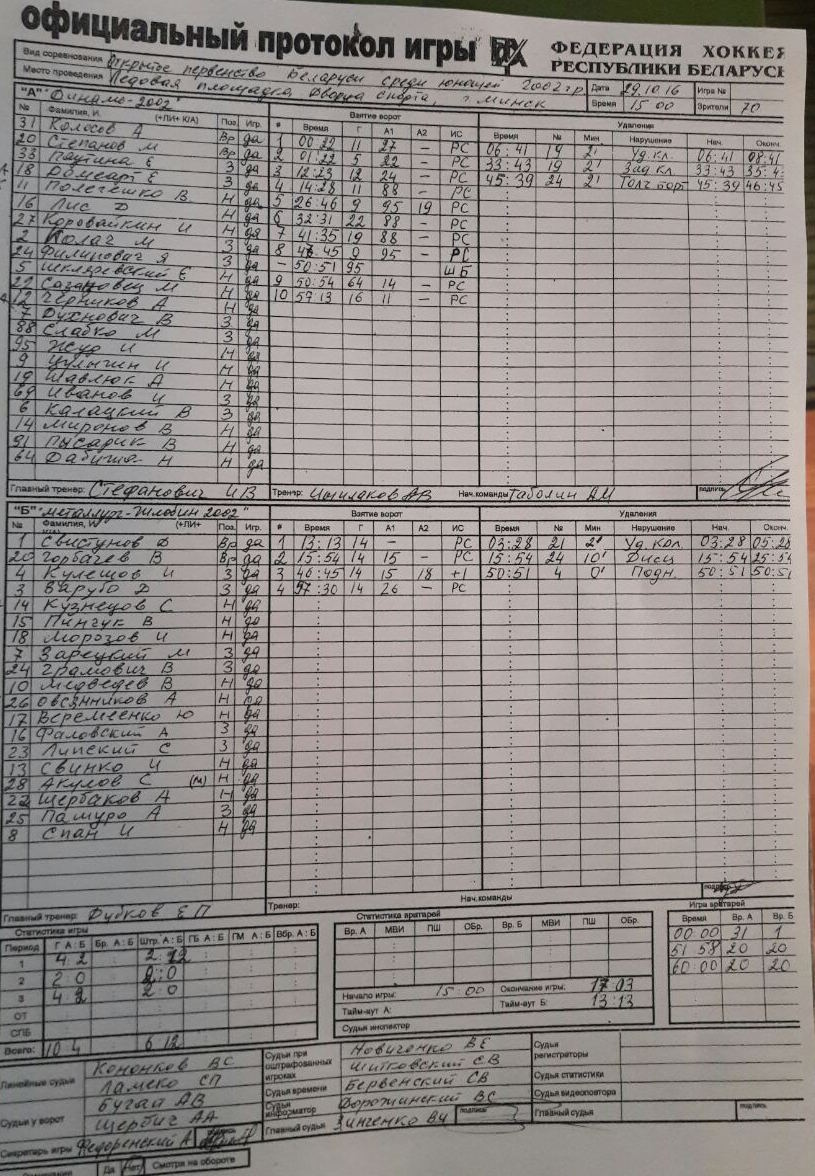 официальный протокол игры
ФЕДЕРАЦИЯ ХОККЕЯ
РЕСПУБЛИКИ БЕЛАРУСЬ
Вид соревнования Открытое первенство Беларуси среди юношей 2002 г.р.
Место проведения Ледовая площадка, Дворца спорта, г. Минск
Дата 29.10.16 Игра №
Время 15 00 Зрители 70
"А" "Динамо-2002"
Взятие ворот Удаления
№ Фамилия, И. (+ЛИ+ К/А) Поз. Игр. # Время Г А1 А2 ИС Время № Мин Нарушение Нач. Оконч.
31 Колосов А Вр да 1 00:22 11 27 – РС 06:41 19 2' Уд. кл. 06:41 08:41
20 Степанов М Вр да 2 01:22 5 22 – РС 33:43 19 2' Зад кл. 33:43 35:4
33 Паутина Е З да 3 12:23 12 24 – РС 45:39 24 2' Толч борт 45:39 46:45
18 З да 4 14:28 11 88 – РС
11 Полегешко В Н да 5 26:46 9 95 19 РС
16 Лис Д Н да 6 32:31 22 88 – РС
27 Коровайкин И Н да 7 41:35 19 88 – РС
2 Колач М З да 8 45 9 95 – РС
24 Филипович Я З да – 50:51 95 ШБ
5 Шкляревский Е Н да 9 50:54 64 14 – РС
22 Сазановец М Н да 10 59:13 16 11 – РС
12 Черников А Н да
7 Духнович В З да
88 Слабко М З да
95 Жуд И Н да
9 Цулыгин И Н да
19 Шавлюк А Н да
69 Иванов И З да
6 Калацкий В З да
14 Миронов В Н да
91 Пысарик В Н да
64 Фабиша Н Н да
Главный тренер: Стефанович И В Тренер: Цыплаков АВ Нач.команды Таболин А М подпись
"Б" "Металлург-Жлобин 2002"
Взятие ворот Удаления
№ Фамилия, И (+ЛИ+ Поз. Игр. # Время Г А1 А2 ИС Время № Мин Нарушение Нач. Оконч.
1 Свистунов Д Вр да 1 13:13 14 – РС 03:28 21 2' Уд. кол. 03:28 05:28
20 Горбачев В Вр да 2 15:54 14 15 – РС 15:54 24 10' Дисц 15:54 25:54
4 Кулешов И З да 3 46:45 14 15 18 +1 50:51 4 0' Подн. 50:51 50:51
3 Варубо Д З да 4 57:30 14 26 – РС
14 Кузнецов С Н да
15 Пинчук В Н да
18 Морозов И Н да
7 Зарецкий М З да
24 Грамович В З да
10 Медведев В Н да
26 Овсянников А Н да
17 Веремеенко Ю Н да
16 Фаловский А З да
23 Липский С З да
13 Свинко И Н да
28 Акулов С (м) Н да
22 Щербаков А Н да
25 Памуро А З да
8 Спан И Н да
Главный тренер: Дубков Е П Тренер: Нач.команды подпись
Статистика игры Статистика вратарей Игра вратарей
Период Г А : Б Бр. А : Б Штр. А : Б ГБ А : Б ГМ А : Б Вбр. А : Б Вр. А МВИ ПШ ОБр. Вр. Б МВИ ПШ ОБр. Время Вр. А Вр. Б
1 4 2 2:12 00:00 31 1
2 2 0 0:0 51 58 20 20
3 4 2 2:0 60:00 20 20
ОТ
СПБ
Всего: 10 4 6 12
Начало игры: 15:00 Окончание игры: 17 03
Тайм-аут А: Тайм-аут Б: 13:13
Судья инспектор
Линейные судьи Кононков ВС
Ламеко СП
Судьи у ворот Бугай АВ
Щербич АА
Судьи при оштрафованных игроках Новиченко ВЕ
Шитковский СВ
Судья времени Бервенский СВ
Судья информатор Дорожинский ВС
Главный судья Зинченко ВЧ подпись
Судьи регистраторы
Судья статистики
Судья видеоповтора
Главный судья подпись
Секретарь игры Федоренский А подпись
Да Нет Смотри на обороте